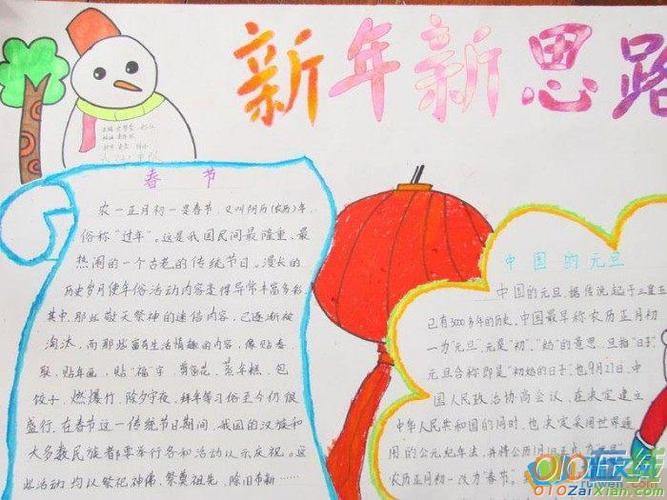 新年新思路
春节
农一正月初一是春节，又叫阴历(农历)年，
俗称"过年"。这是我国民间最隆重、最
热闹的一个古老的传统节日。漫长的
历史岁月使年俗活动内容变得异常丰富多彩，
其中，那些敬天祭神的迷信内容，已逐渐被
淘汰，而那些富有生活情趣的内容，像贴春
联、贴年画、贴"福"字、剪窗花、蒸年糕、包
饺子、燃爆竹、除夕守夜、拜年等习俗至今仍很
盛行，在春节这一传统节日期间，我国的汉族和
大多数民族都要举行各种活动以示庆祝。这
些活动均以祭祀神佛、祭奠祖先、除旧布新……
中国的元旦
中国的元旦，据传说起于三皇五
已有3000多年的历史。中国最早称农历正月初
一为"元旦"，元是"初"、"始"的意思，旦指"日子"，
元旦合称即是"初始的日子"，也9月27日，中
国人民政治协商会议，在决定建立
中华人民共和国的同时，也决定采用世界通
用的公元纪年法，并将公历1月1日正
农历正月初一改为"春节"。
010在线
ruiwen.com
010ZaiXian.com